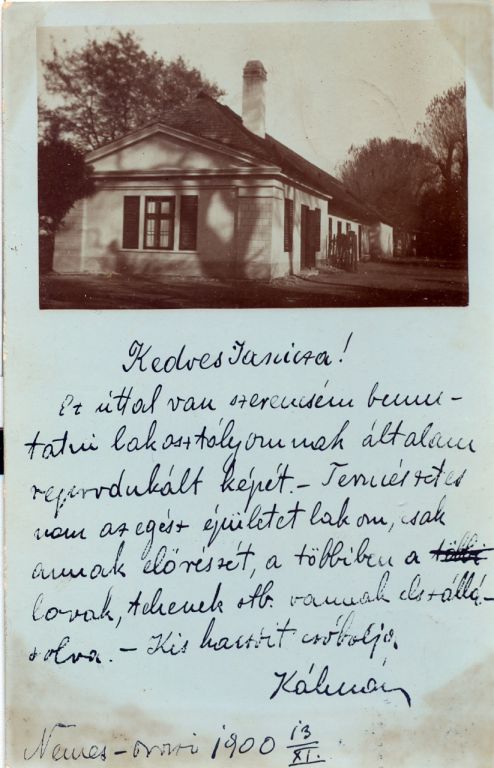 Kedves Janicza!
Ez úttal van szerencsém bemu-
tatni lakosztályomnak általam
reprodukált képét. - Természetes
nem az egész épületet lakom, csak
annak előrészét, a többiben a többi
lovak, tehenek stb. vannak elszállá-
solva. - Kis kacsóit csókolja
Kálmán
Nemes- 1900 13/XI.